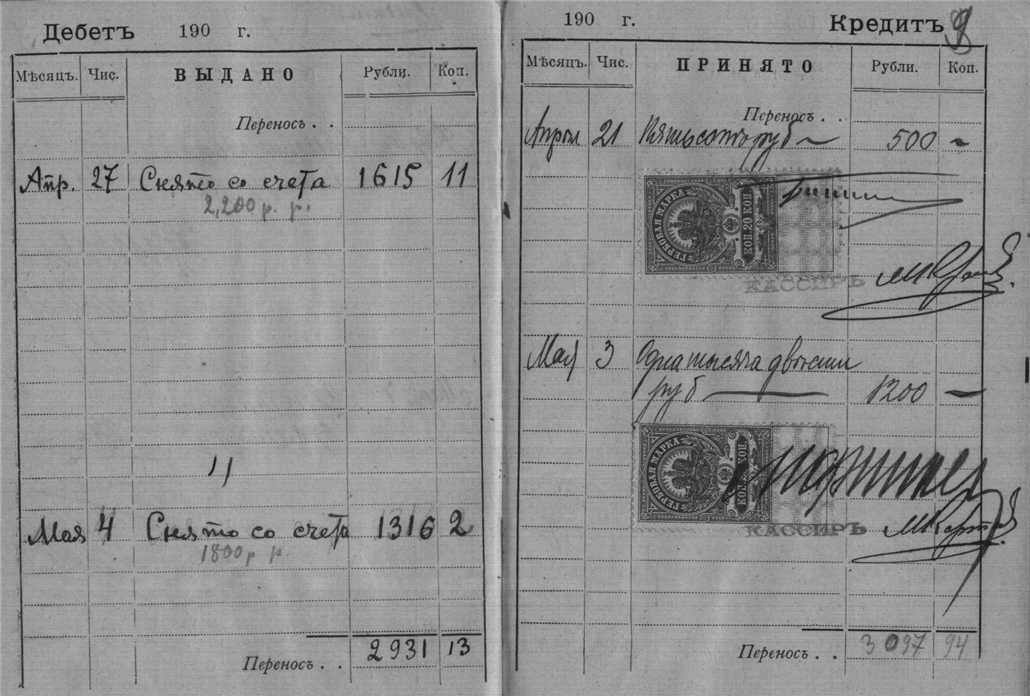 Дебетъ 190 г.
Мѣсяцъ. Чис. ВЫДАНО Рубли. Коп.
Переносъ . .
Апр. 27 Снято со счета 1615 11
2,200 р. р.
11
Мая 4 Снято со счета 1316 2
1800 р р
2931 13
Переносъ . .
190 г. Кредитъ
Мѣсяцъ. Чис. ПРИНЯТО Рубли. Коп.
Переносъ . .
Апрѣл 21 Пятьсотъ руб — 500 —
ГЕРБОВАЯ МАРКА
КОП. 20 КОП.
КАССИРЪ
Мая 3 Одна тысяча двѣсти
руб — 1200 —
ГЕРБОВАЯ МАРКА
КОП. 20 КОП.
КАССИРЪ
Переносъ . . 3 097 94